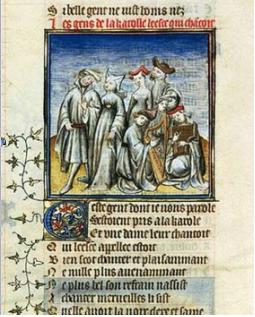 Si belle gent ne vist homs nez
Ces gens de la karolle leesce qui chatoit
Ceste gent dont ie uous parole
Sestoient pris a la karole
Et vne dame leur chantoit
Qui leesce apellee estoit
Bien scot chanter et plaisamment
Ne nulle plus auenamment
Ne plus bel son refrain nassist
A chanter merueilles li sist
Quelle auoit la voix clere et saine